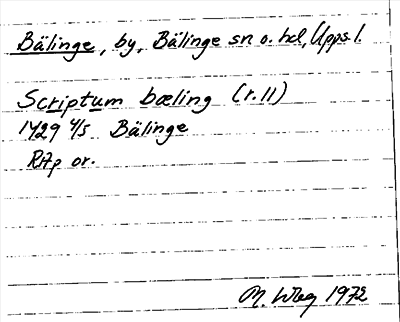 Bälinge, by, Bälinge sn o. hd, Upps. l.
Scriptum bæling (r. 11)
1429 4/5 Bälinge
RAp or.
M. Wbg 1972